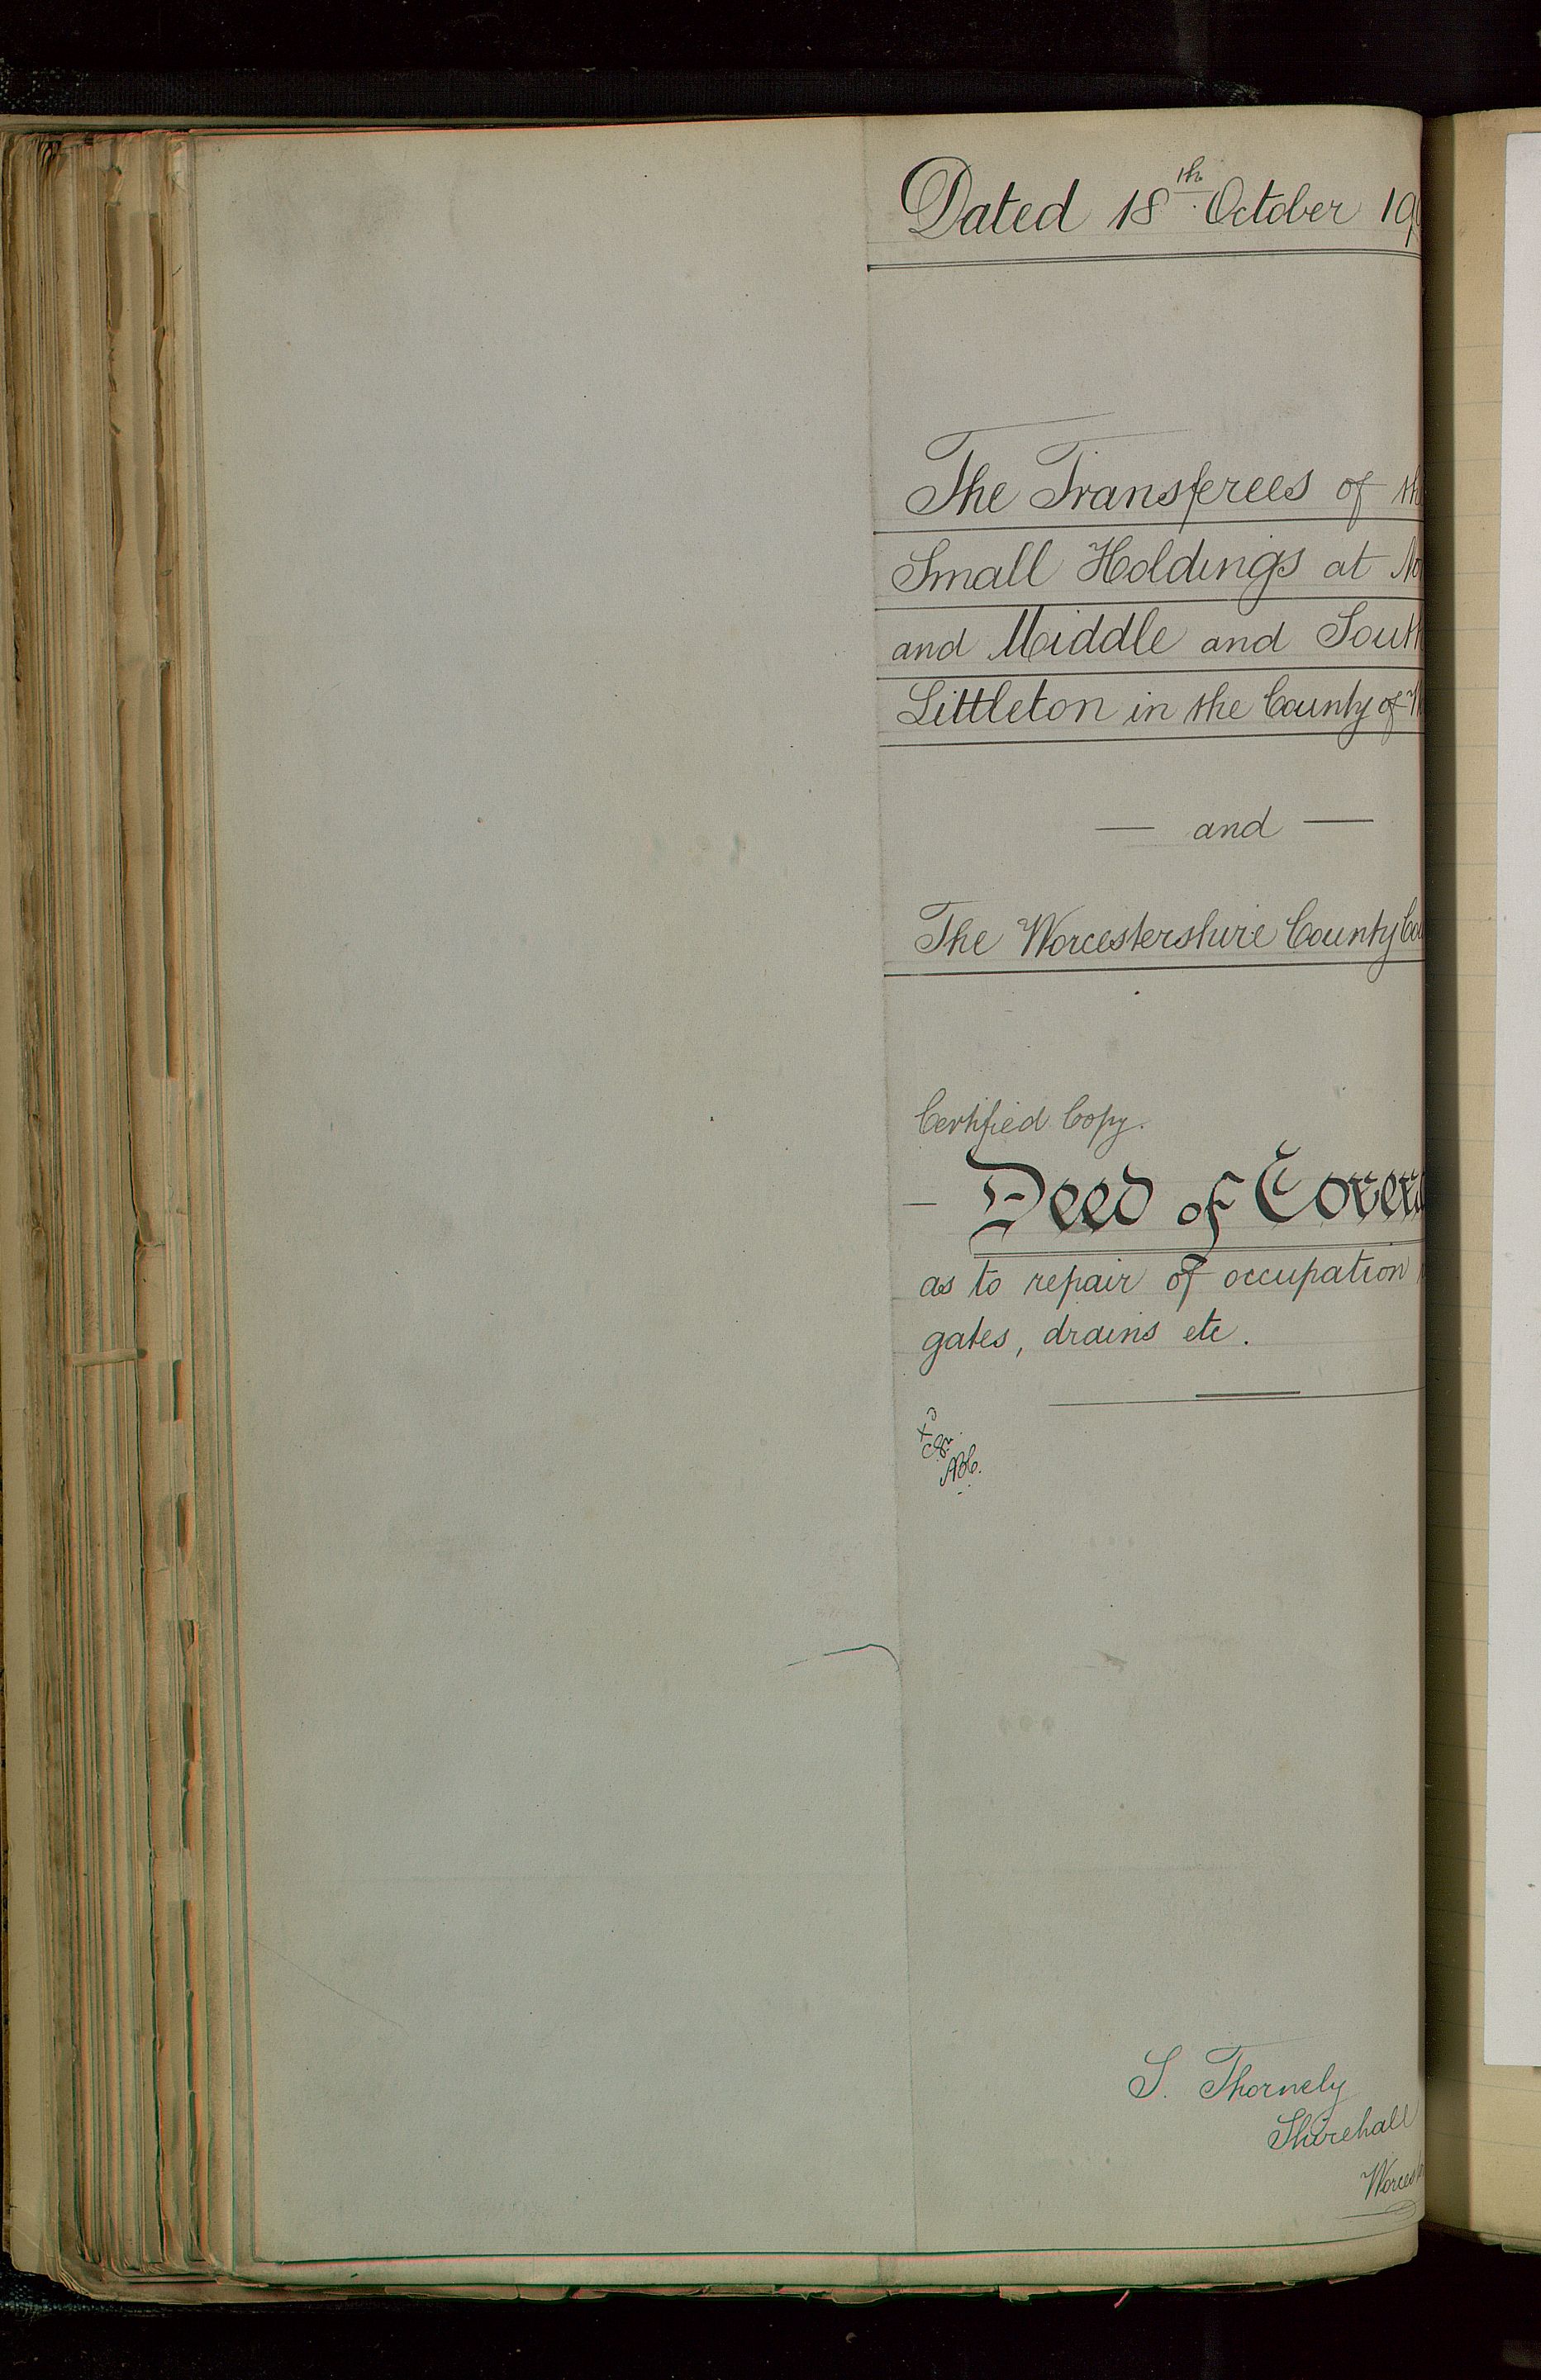 Dated 18th October 19
The Transferees of th
Small Holdings at No
and Middle and South
Littleton in the County of W
— and —
The Worcestershire County Cou
Certified Copy.
— Deed of Covena
as to repair of occupation
gates, drains etc.
S. Thornely
Shirehall
Worcest